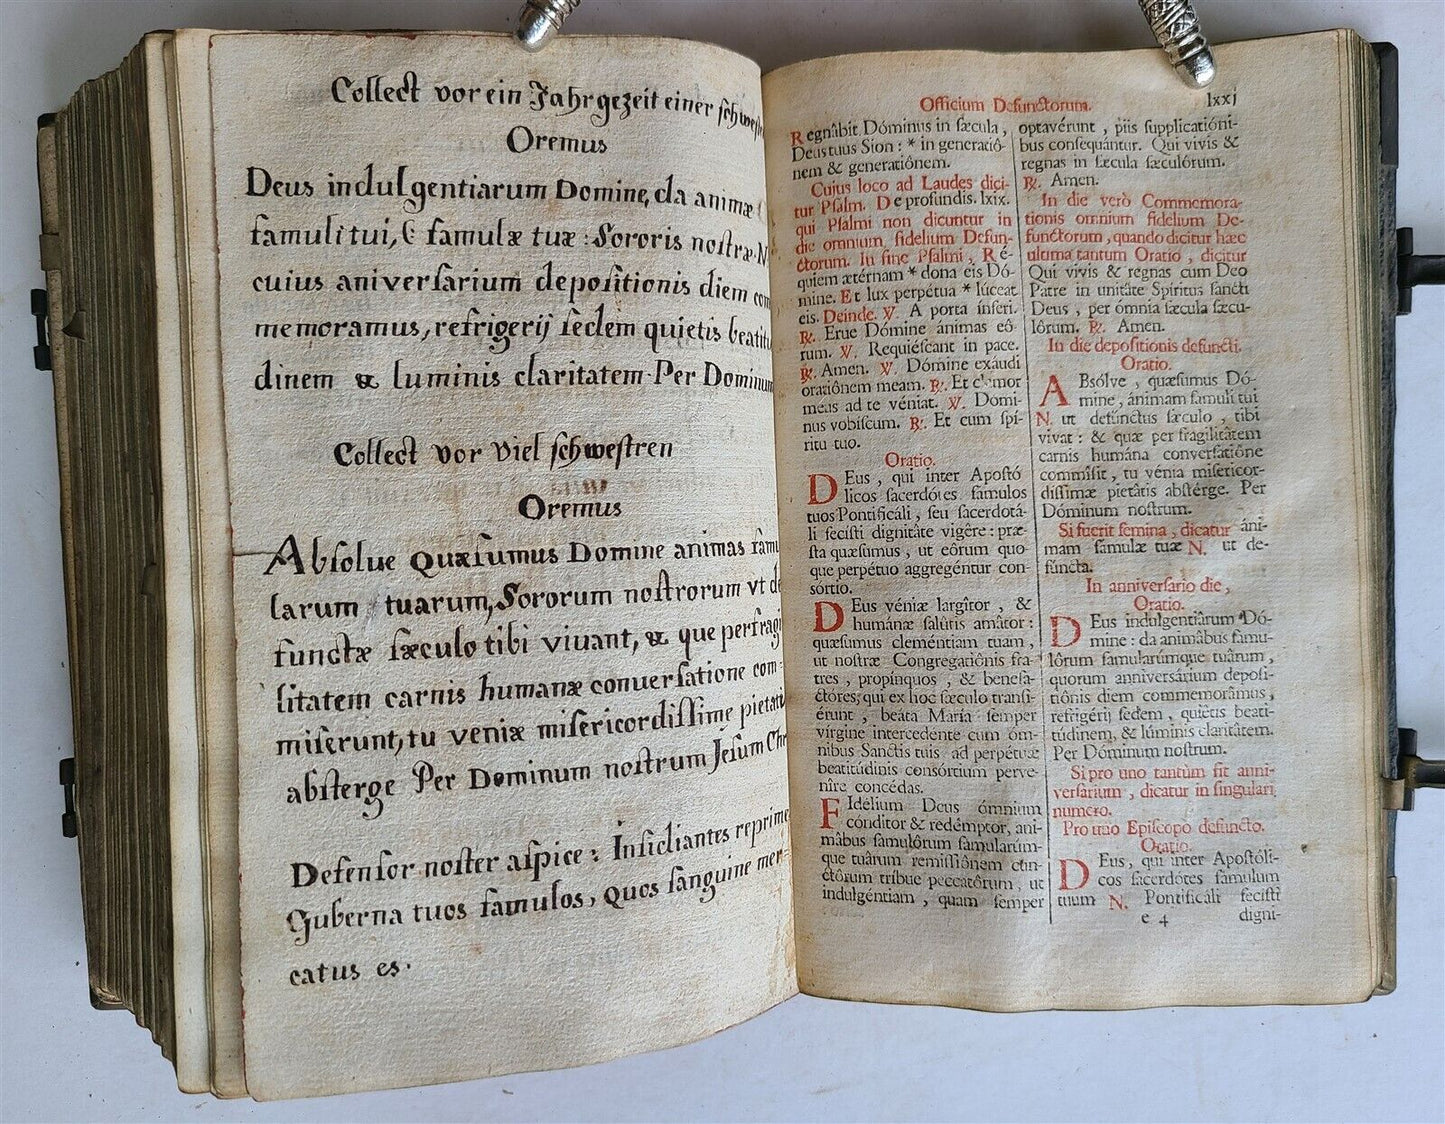 Collect vor ein Jahrgezeit einer schwest
Oremus
Deus indulgentiarum Domine, da animæ
famuli tui, & famulæ tuæ : Sororis nostræ N
cuius aniversarium depositionis diem com
memoramus, refrigerij sedem quietis beatitu
dinem & luminis claritatem. Per Dominum
Collect vor viel schwestren
Oremus
Absolue Quæsumus Domine animas famu
larum tuarum, Sororum nostrorum vt de
functæ sæculo tibi viuant, & que per fragi
litatem carnis humanæ conuersatione com=
miserunt, tu veniæ misericordissime pietatis
absterge Per Dominum nostrum Jesum Chr
Defensor noster aspice : Insidiantes reprime
Guberna tuos famulos, Quos sanguine mer=
catus es.
Officium Defunctorum. lxxj
Regnâbit Dóminus in sæcula,
Deus tuus Sion : * in generatiô-
nem & generatiônem.
Cuius loco ad Laudes dici-
tur Psalm. De profundis. lxix.
qui Psalmi non dicuntur in
die omnium fidelium Defun-
ctorum. In fine Psalmi, Ré-
quiem ætérnam * dona eis Dó-
mine. Et lux perpétua * lúceat
eis. Deinde. ℣. A porta ínferi.
℟. Erue Dómine ánimas eô-
rum. ℣. Requiéscant in pace.
℟. Amen. ℣. Dómine exáudi
oratiônem meam. ℟. Et clamor
meus ad te véniat. ℣. Domi-
nus vobíscum. ℟. Et cum spí-
ritu tuo.
Oratio.
DEus, qui inter Apostó
licos sacerdótes famulos
tuos Pontificáli, seu sacerdotá-
li fecísti dignitâte vigêre : præ-
sta quæsumus, ut eôrum quo-
que perpétuo aggregéntur con-
sórtio.
DEus véniæ largîtor, &
humánæ salûtis amâtor :
quæsumus cleméntiam tuam,
ut nostræ Congregatiônis fra-
tres, propínquos, & benefa-
ctóres, qui ex hoc sæculo transi-
érunt, beáta María semper
vírgine intercedente cum óm-
nibus Sanctis tuis ad perpétuæ
beatitúdinis consórtium perve-
nîre concédas.
FIdélium Deus ómnium
cónditor & redémptor, ani-
mâbus famulôrum famularúm-
que tuârum remissiônem cun-
ctôrum tríbue peccatôrum, ut
indulgéntiam, quam semper
optavérunt, piis supplicatióni-
bus consequántur. Qui vivis &
regnas in sæcula sæculórum.
℟. Amen.
In die verò Commemora-
tionis omnium fidelium De-
functorum, quando dicitur hæc
ultima tantum Oratio, dicitur
Qui vivis & regnas cum Deo
Patre in unitâte Spíritus sancti
Deus, per ómnia sæcula sæcu-
lôrum. ℟. Amen.
In die depositionis defuncti.
Oratio.
ABsólve, quæsumus Dó-
mine, ánimam famuli tui
N. ut defúnctus sæculo, tibi
vivat : & quæ per fragilitâtem
carnis humána conversatiône
commísit, tu vénia misericor-
díssimæ pietâtis abstérge. Per
Dóminum nostrum.
Si fuerit femina, dicatur áni-
mam famulæ tuæ N. ut de-
fúncta.
In anniversario die,
Oratio.
DEus indulgentiârum Dó-
mine : da animâbus famu-
lôrum famularúmque tuârum,
quorum anniversárium deposi-
tiônis diem commemorâmus,
refrigérij sedem, quiétis beati-
túdinem, & lúminis claritâtem.
Per Dóminum nostrum.
Si pro uno tantùm fit anni-
versarium, dicatur in singulari
numero.
Pro uno Episcopo defuncto.
Oratio.
DEus, qui inter Apostóli-
cos sacerdótes famulum
tuum N. Pontificáli fecísti
e 4 digni-